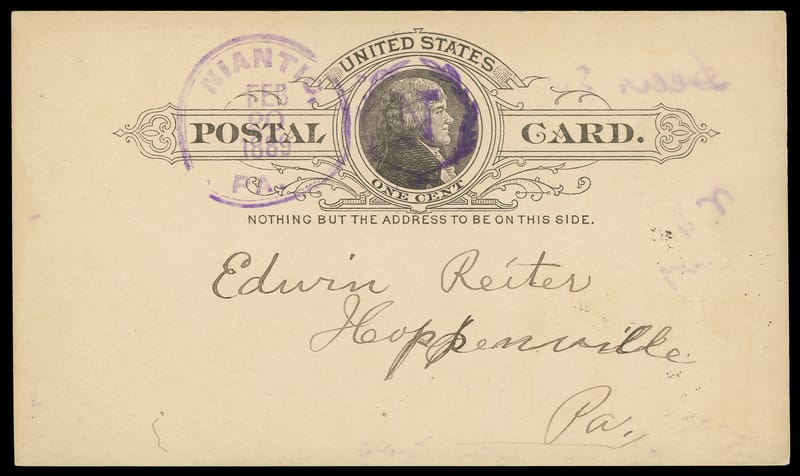 UNITED STATES
NIANTIC,
FEB
20
1889
PA.
POSTAL CARD.
ONE CENT
NOTHING BUT THE ADDRESS TO BE ON THIS SIDE.
Edwin Reiter
Hoppenville
Pa.